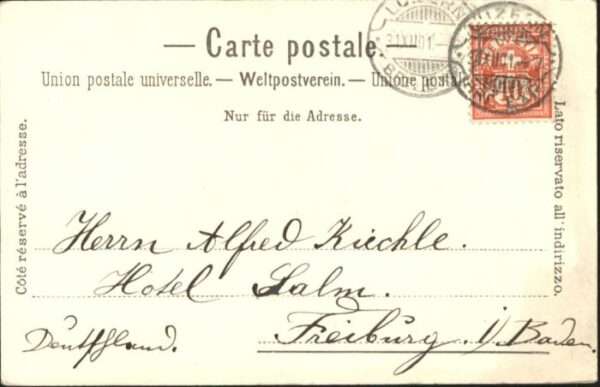 LUZERN
31.XII.01.
LUZERN
31.XII.01.
— Carte postale. —
Union postale universelle. — Weltpostverein. — Unione postale
Nur für die Adresse.
Côté réservé à l'adresse.
Lato riservato all'indirizzo.
Herrn Alfred Kiechle.
Hotel Salm.
Freiburg i/Baden.
Deutschland.